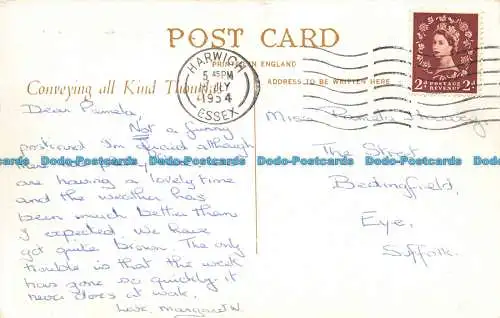 POST CARD
PRINTED IN ENGLAND
ADDRESS TO BE WRITTEN HERE
HARWICH
5 45 PM
JLY
1954
ESSEX
POSTAGE REVENUE
2d 2d
Conveying all Kind Thoughts
Dear Pamela,
Not a funny
postcard I'm afraid although
there are
are having a lovely time
and the weather has
been much better than
I expected. We have
got quite brown. The only
trouble is that the week
has gone so quickly. it
never does at wak.
Love, Margaret W.
Miss Pamela
The Street
Bedingfield,
Eye,
Suffolk.
Dodo-Postcards Dodo-Postcards Dodo-Postcards Dodo-Postcards Dodo-Postcards